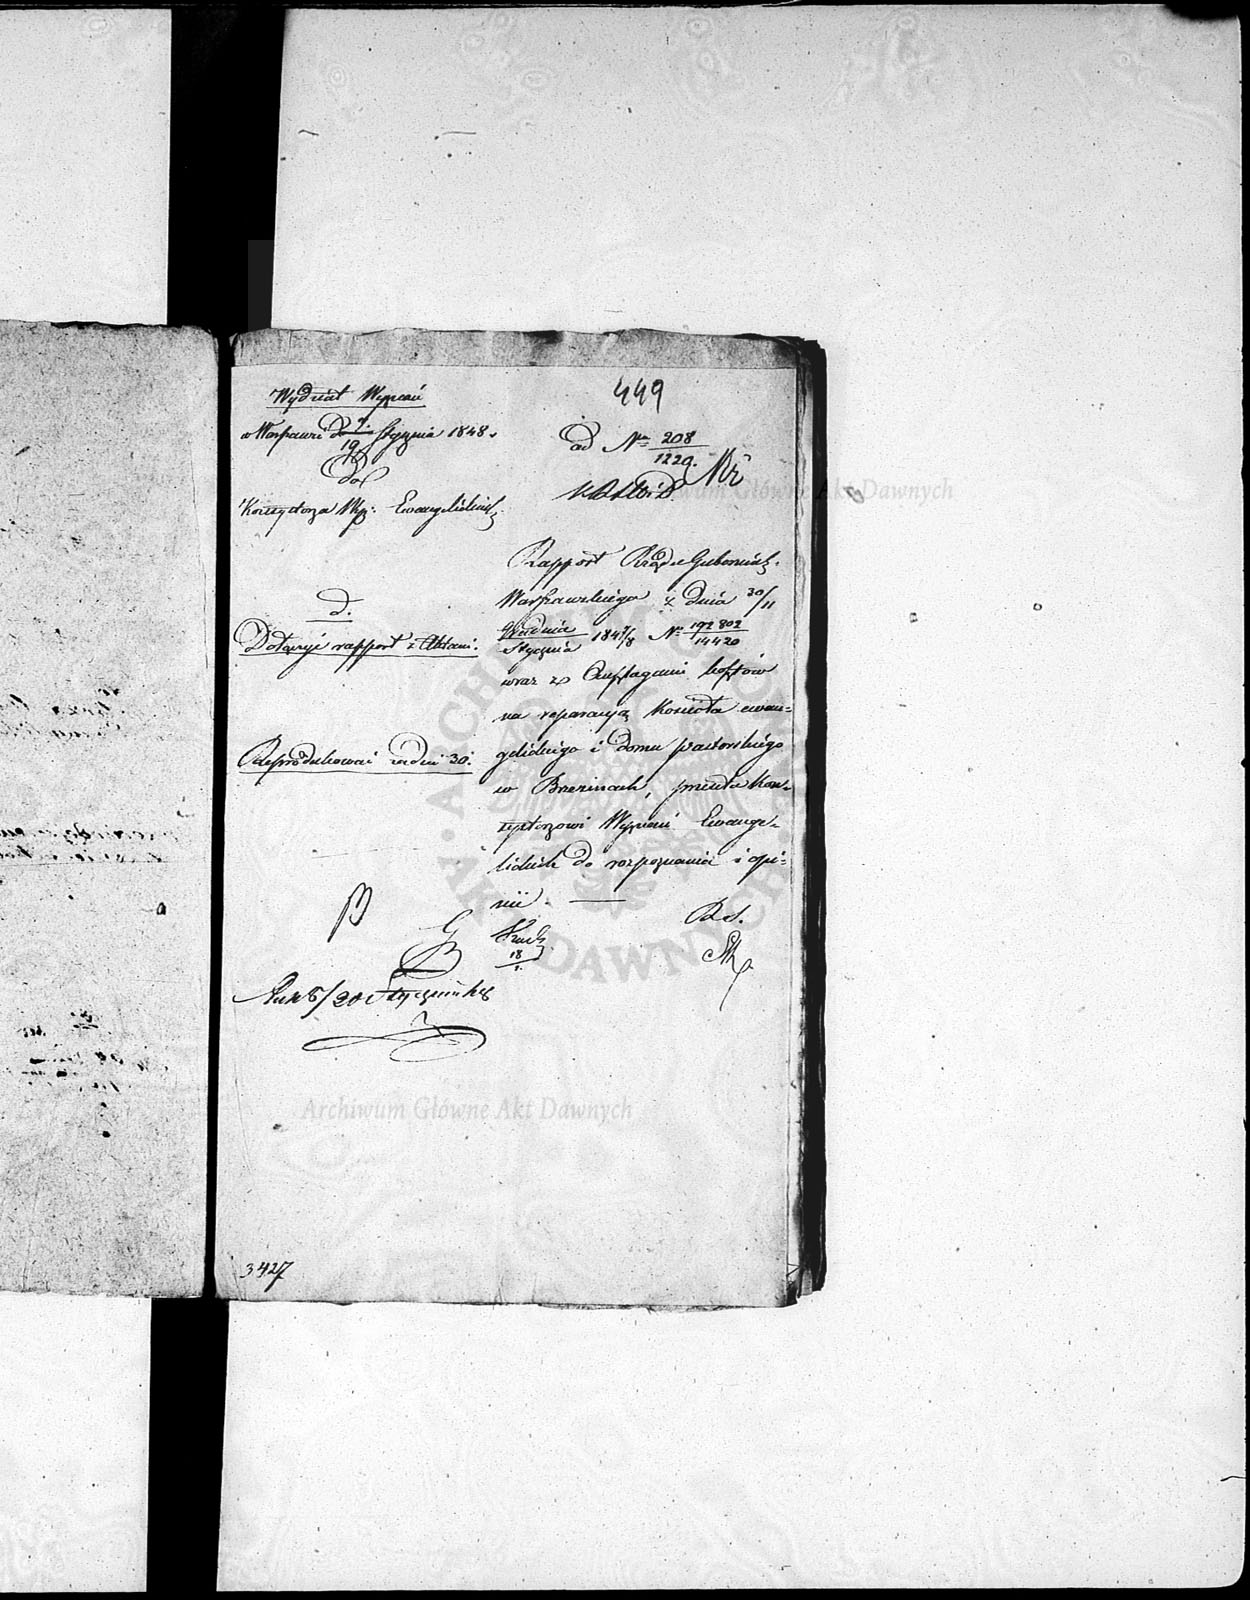 449
Wydział Wyznań
w Warszawie d. 7/19 Stycznia 1848.
ad Nr 208/1229.
do
Konsystorza Wyz: Ewangelickich
Rapport Rządu Gubernial:
Warszawskiego z dnia 30/11
Grudnia/Stycznia 1847/8 Nr 192802/14420
wraz z Anszlagami kosztów
na reparacyą Kościoła ewan=
gelickiego i domu pastorskiego
w Brzezinach, przesyła Kon=
systorzowi Wyznań Ewange=
lickich do rozpoznania i opi=
nii. —
d.
Dołączyć rapport z Aktami.
Reprodukować za dni 30.
18/1.
8/20 Stycznia
3427
Archiwum Główne Akt Dawnych
Archiwum Główne Akt Dawnych